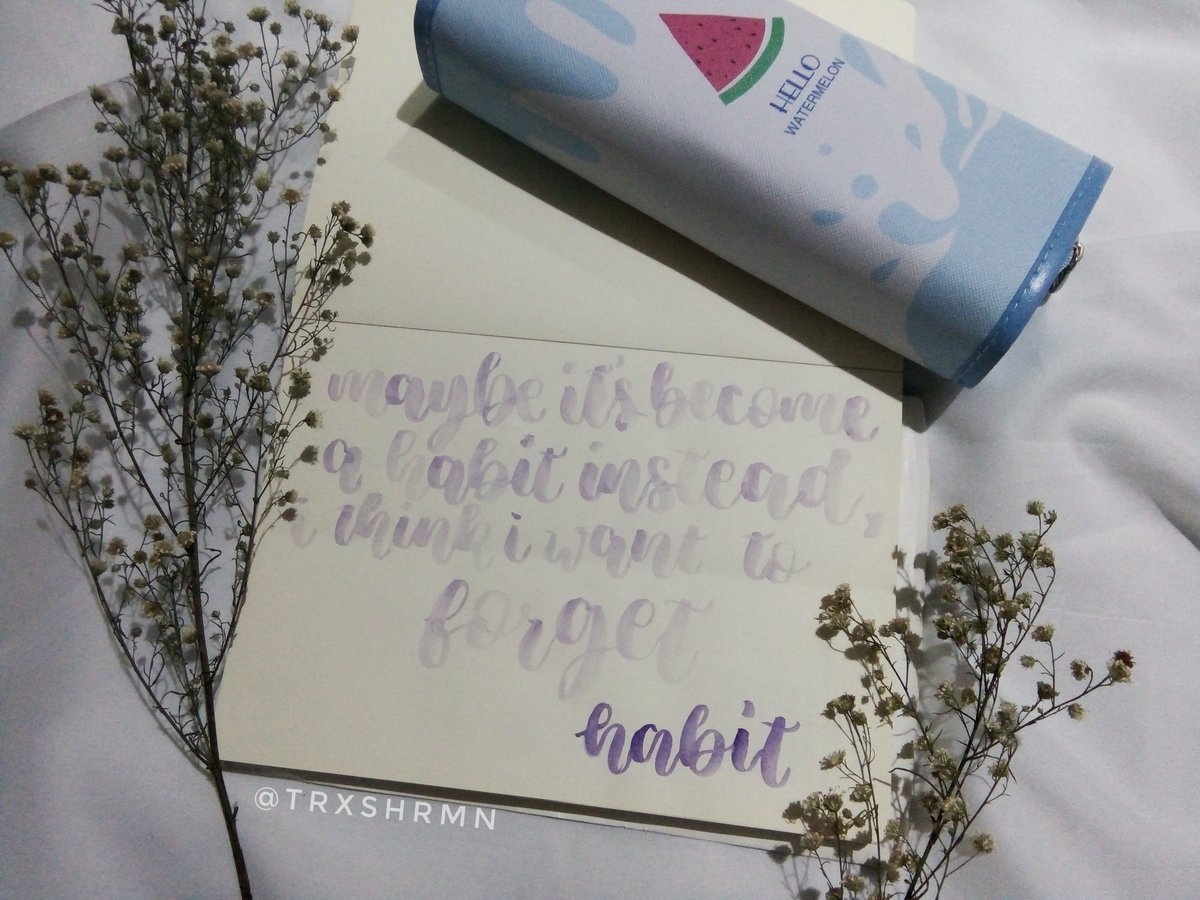 HELLO
WATERMELON
maybe it's become
a habit instead,
i think i want to
forget
habit
@TRXSHRMN